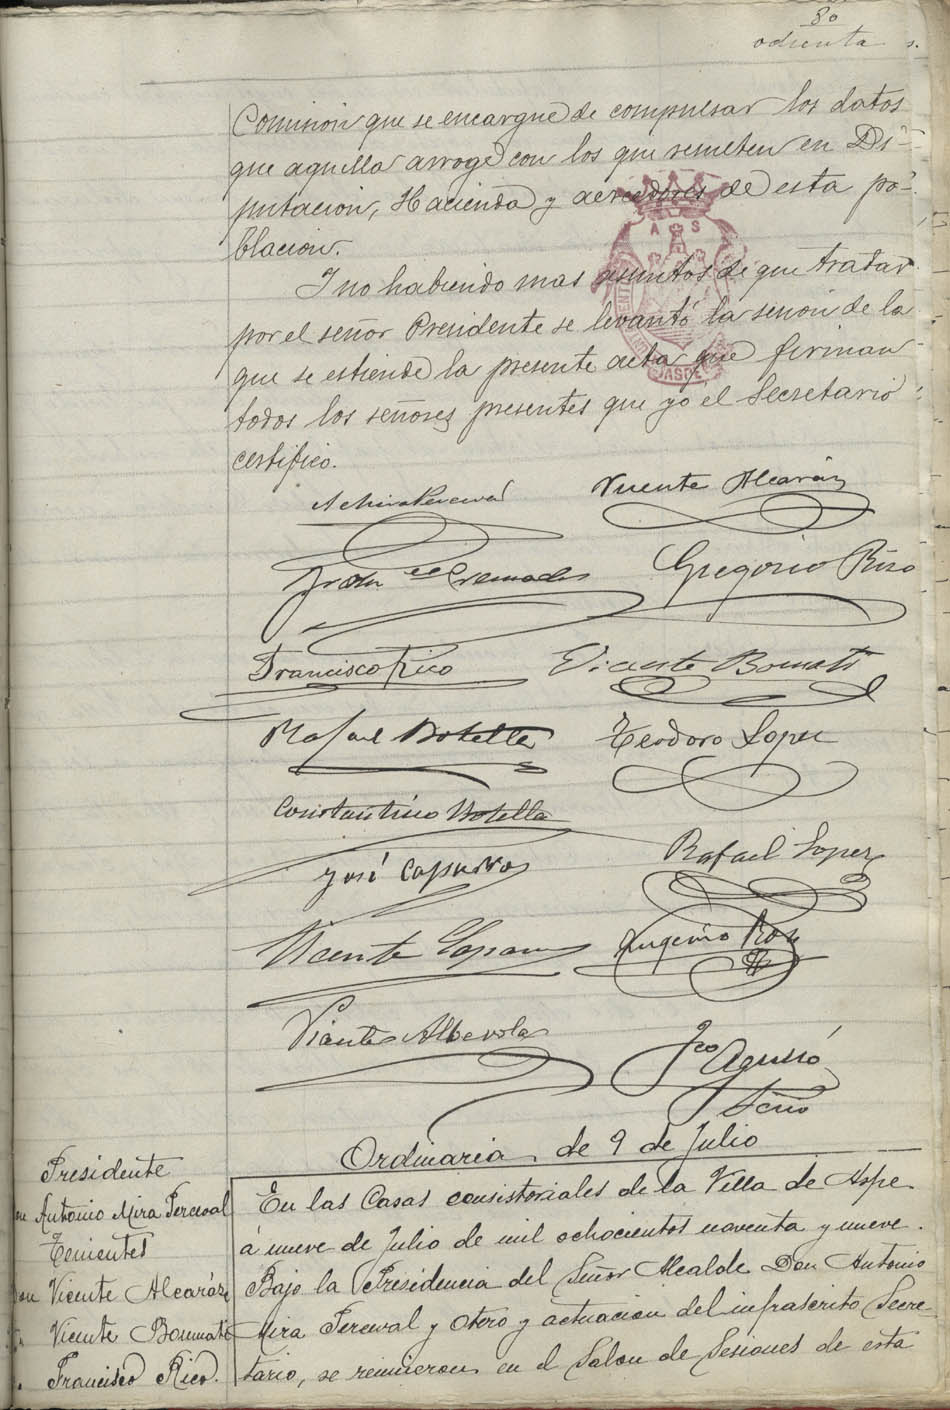 80
ochenta
Comision que se encargue de compulsar los datos
que aquella arroge con los que remiten en Di-
putacion, Hacienda y acreedores de esta po-
blacion.
Y no habiendo mas asuntos de que tratar
por el señor Presidente se levantó la sesion de la
que se estiende la presente acta que firman
todos los señores presentes que yo el Secretario
certifico.
A S
A Mira Perceval
Vicente Alcaráz
Cremades
Gregorio Rizo
Francisco Rico
Vicente Bonmati
Rafael Botella
Teodoro Lopez
Constantino Botella
Rafael Lopez
José Caparro
Vicente
Eugenio
Vicente Alberola
Fco Agulló
Srio
Ordinaria de 9 de Julio
Presidente
Don Antonio Mira Perceval
Tenientes
Don Vicente Alcaráz
Vicente Bonmati
Francisco Rico.
En las Casas consistoriales de la Villa de Aspe
á nueve de Julio de mil ochocientos noventa y nueve.
Bajo la Presidencia del Señor Alcalde Don Antonio
Mira Perceval y Otero y actuacion del infrascrito Secre-
tario, se reunieron en el Salon de Sesiones de esta